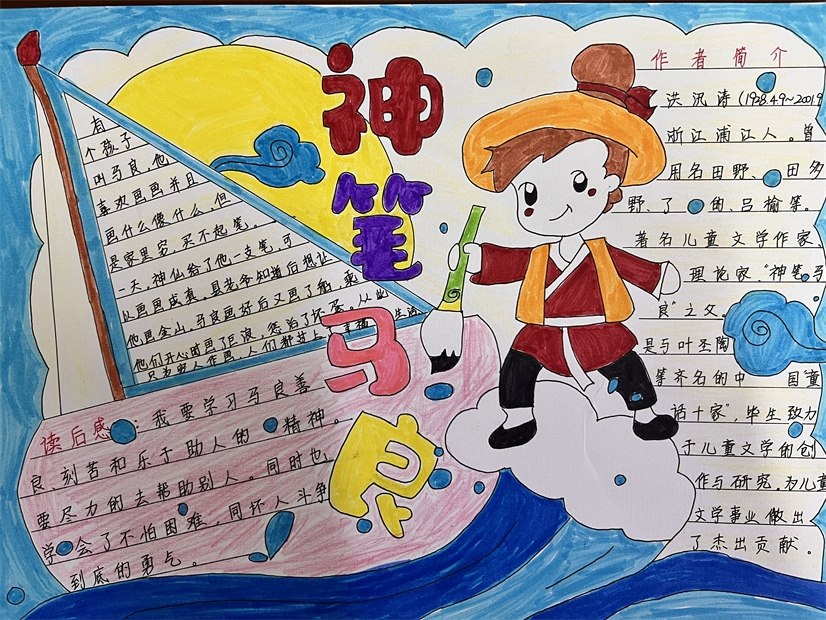 神笔马良
有
个孩子
叫马良,他
喜欢画画并且
画什么像什么,但
是家里穷,买不起笔。
一天,神仙给了他一支笔,可
以画画成真。县老爷知道后想让
他画金山,马良画好后又画了船,乘
他们开心时画了巨浪,惩治了坏蛋,从此
只为穷人作画,人们都过上
读后感:我要学习马良善
良、刻苦和乐于助人的精神。
要尽力的去帮助别人。同时也
学会了不怕困难,同坏人斗争
到底的勇气。
作者简介
洪汛涛(1928.4.9~2001.9
浙江浦江人。曾
用名田野、田多
野、了的、吕榆等。
著名儿童文学作家、
理论家,“神笔马
良”之父。
是与叶圣陶
等齐名的中国“童
话十家”,毕生致力
于儿童文学的创
作与研究,为儿童
文学事业做出
了杰出贡献。